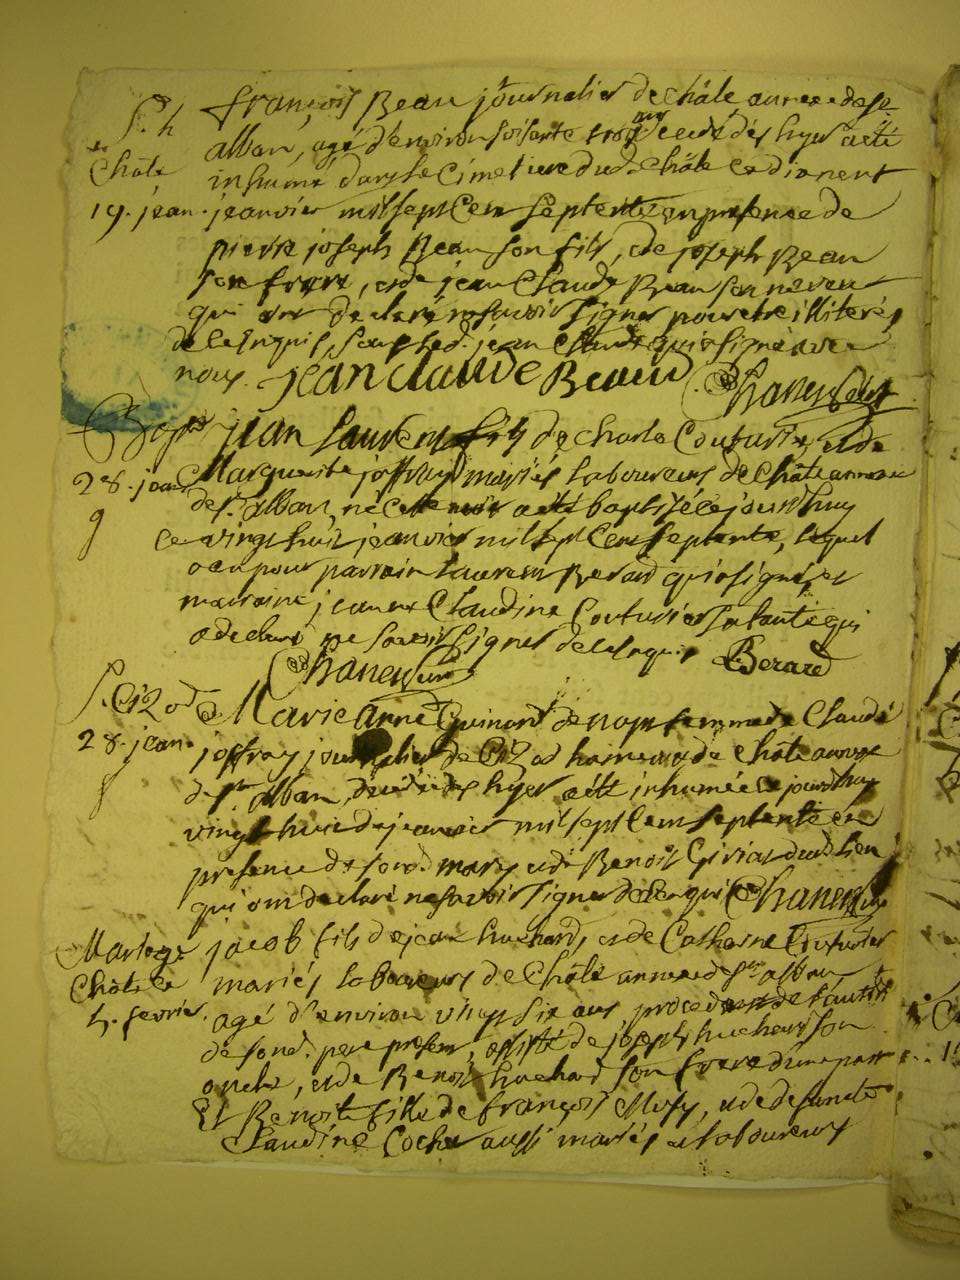 S. h
de
Châle
19. jean.
françois Beau journalier de châle annexe de st
alban, agé d'environ soisente trois ans decedé dés hyer a eté
inhumé dans le Cimetiere dud. Châle le dixneuf
jeanvier mil sept Cent septente en presence de
pierre joseph Beau son fils, et de joseph Beau
son frere, et de jean Claude Beau son neveu
qui ont declaré ne savoir signer pour etre illiterés
de ce enquis, sauf led. jean Claude qui a signé avec
nous. jean claude Beaud Chanen
Bapt.
28. jean
9
jean Laurent fils de Charle Couturier, et de
Marguerite joffray mariés laboureurs de Châle annexe
de st. alban, né cette nuit a eté baptisé ce jourd'huy
ce vingt huit jeanvier mil sept Cent septente, lequel
a eu pour parrain Laurent Berard qui a signé, et
marraine jeanne Claudine Couturier sa tante qui
a declaré ne savoir signer de ce enquis Berard
Chanen
S.
28. jean.
Marie anne Guinard de femme de Claude
joffray journalier de hameau de Châle annexe
de st. alban, decedée dés hyer a eté inhumée ce jourd'huy
vingt huit de jeanvier mil sept Cent septente en
presence de sond. mary et de Benoit dud. lien
qui ont declaré ne savoir signer de ce enquis Chanen
Mariage
Châle le
5. fevrier.
jacob fils de jean huchard, et de Catherine Couturier
mariés laboureurs de Châle annexe de st. alban
agé d'environ vingt six ans, procedant de l'autorité
de sond. pere present, assisté de joseph huchard son
oncle, et de Benoit huchard son frere d'une part
Et Benoite fille de françois, et de defuncte
Claudine Cochet aussi mariés et laboureurs